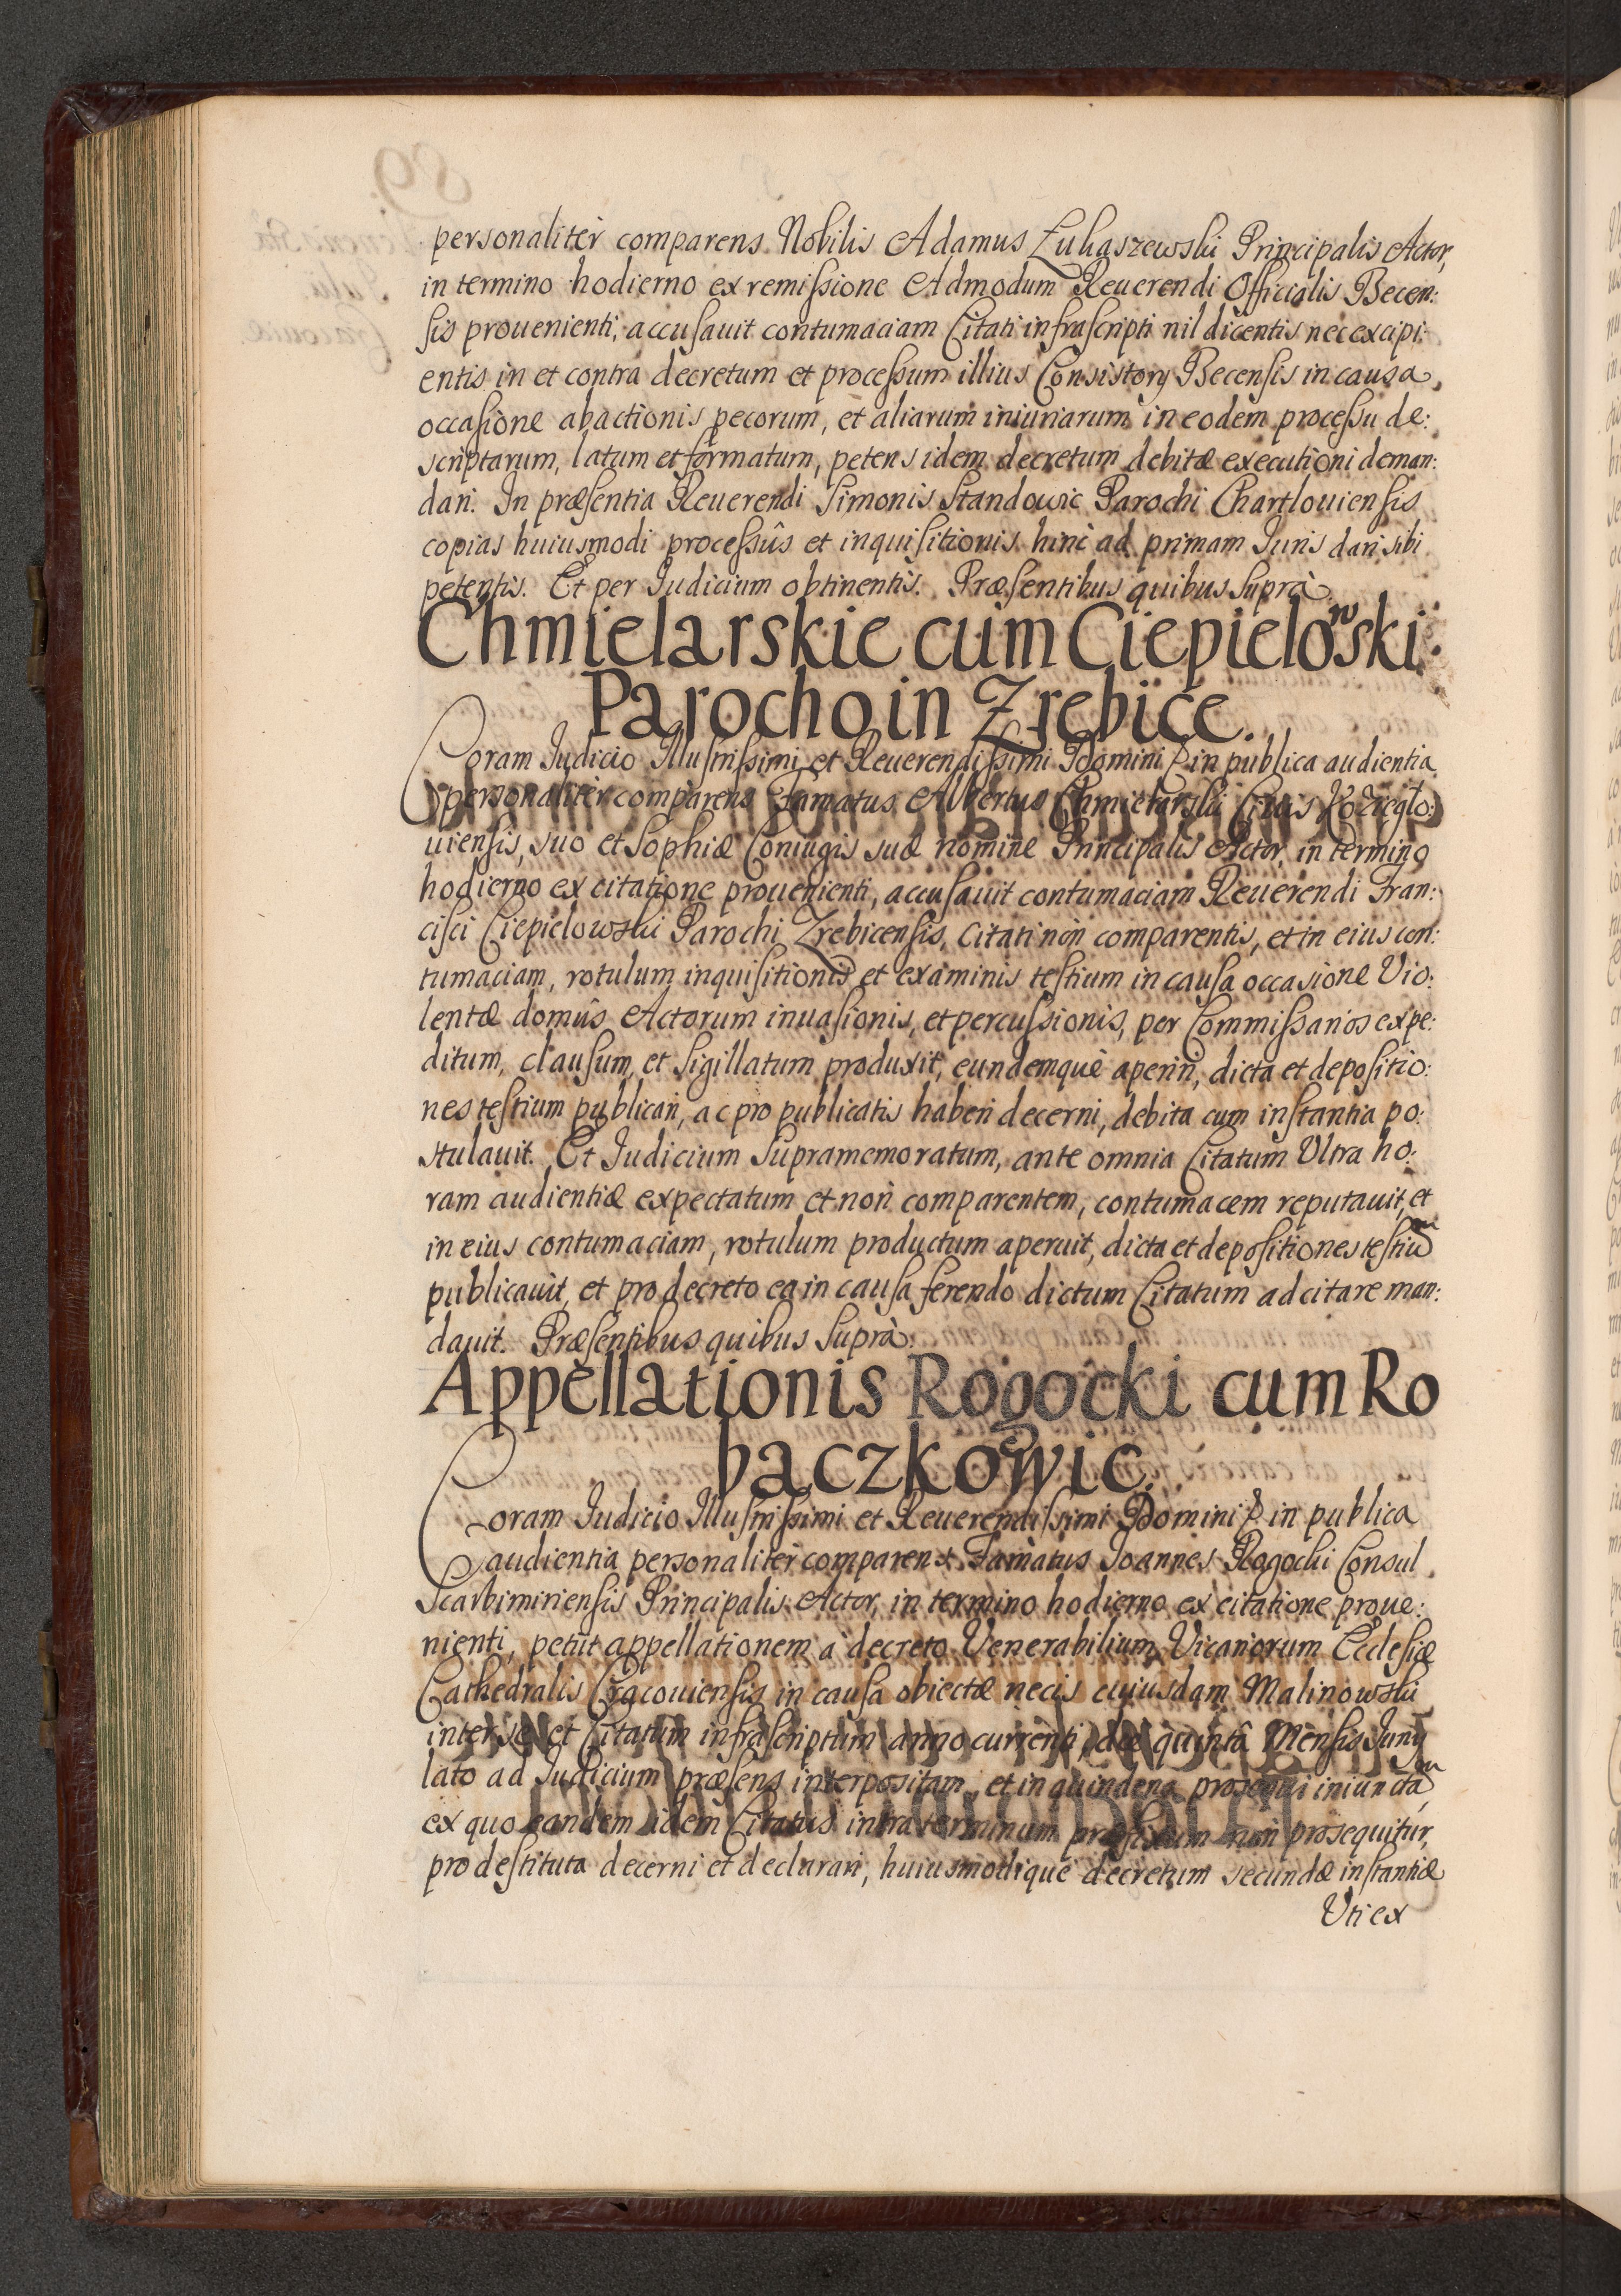 personaliter comparens Nobilis Adamus Łukaszewski Principalis Actor,
in termino hodierno ex remissione Admodum Reuerendi Officialis Becen:
sis prouenienti, accusauit contumaciam Citati infrascripti nil dicentis nec excipi:
entis in et contra decretum et processum illius Consistorij Becensis in causa,
occasione abactionis pecorum, et aliarum iniuriarum in eodem processu de:
scriptarum, latum et formatum, petens idem decretum debitæ executioni deman:
dari. In præsentia Reuerendi Simonis Standowic Parochi Chartlouiensis
copias huiusmodi processûs et inquisitionis hinc ad primam Iuris dari sibi
petentis. Et per Iudicium obtinentis. Præsentibus quibus suprà.
Chmielarskie cum Ciepielowski
Parocho in Zrebice.
Coram Iudicio Illustrissimi et Reuerendissimi Domini in publica audientia
personaliter comparens Famatus Albertus Chmielarski Ciuis Koziegło:
uiensis, suo et Sophiæ Coniugis suæ nomine Principalis Actor, in termino
hodierno ex citatione prouenienti, accusauit contumaciam Reuerendi Fran:
cisci Ciepielowski Parochi Zrebicensis, Citati non comparentis, et in eius con:
tumaciam, rotulum inquisitionis et examinis testium in causa occasione Vio:
lentæ domûs Actorum inuasionis, et percussionis, per Commissarios expe:
ditum, clausum, et sigillatum produxit, eundemque aperiri, dicta et depositio:
nes testium publicari, ac pro publicatis haberi decerni, debita cum instantia po:
stulauit. Et Iudicium supramemoratum, ante omnia Citatum Vltra ho:
ram audientiæ expectatum et non comparentem, contumacem reputauit, et
in eius contumaciam, rotulum productum aperuit, dicta et depositiones testium
publicauit, et pro decreto ea in causa ferendo dictum Citatum adcitare man:
dauit. Præsentibus quibus suprà.
Appellationis Rogocki cum Ro
baczkowic.
Coram Iudicio Illustrissimi et Reuerendissimi Domini in publica
audientia personaliter comparens Famatus Joannes Rogocki Consul
Scarbimiriensis Principalis Actor, in termino hodierno ex citatione proue:
nienti, petiit appellationem à decreto Venerabilium Vicariorum Ecclesiæ
Cathedralis Cracouiensis in causa obiectæ necis cuiusdam Malinowski
inter se et Citatum infrascriptum anno currenti, die quintâ Mensis Iunij
lato ad Iudicium præsens interpositam, et in quindena prosequi iniunctam,
ex quo eandem idem Citatus intra terminum præfixum non prosequitur,
pro destituta decerni et declarari, huiusmodique decretum secundæ instantiæ
Vti ex